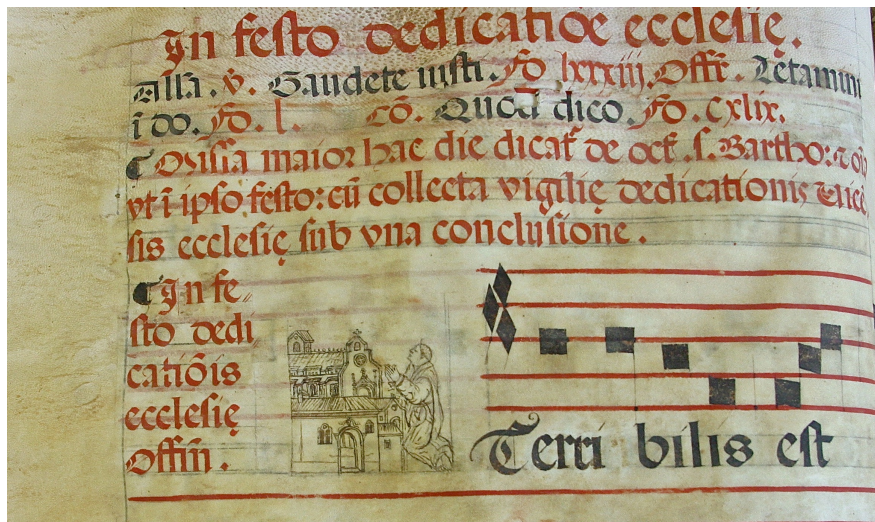 In festo dedicatiōe ecclesię.
Allā. v̄. Gaudete iusti. Fo lxxxiij. Offr̄. Letamini
ī do. Fo. l. cō. Quod dico. Fo. cxlix.
Missa maior hac die dicat̄ de oct̄. s. Bartho:
vt ī ipso festo: cū collecta vigilię dedicationis
sis ecclesię sub vna conclusione.
In fe-
sto dedi
catiōis
ecclesię
Offm̄.
Terri bilis est